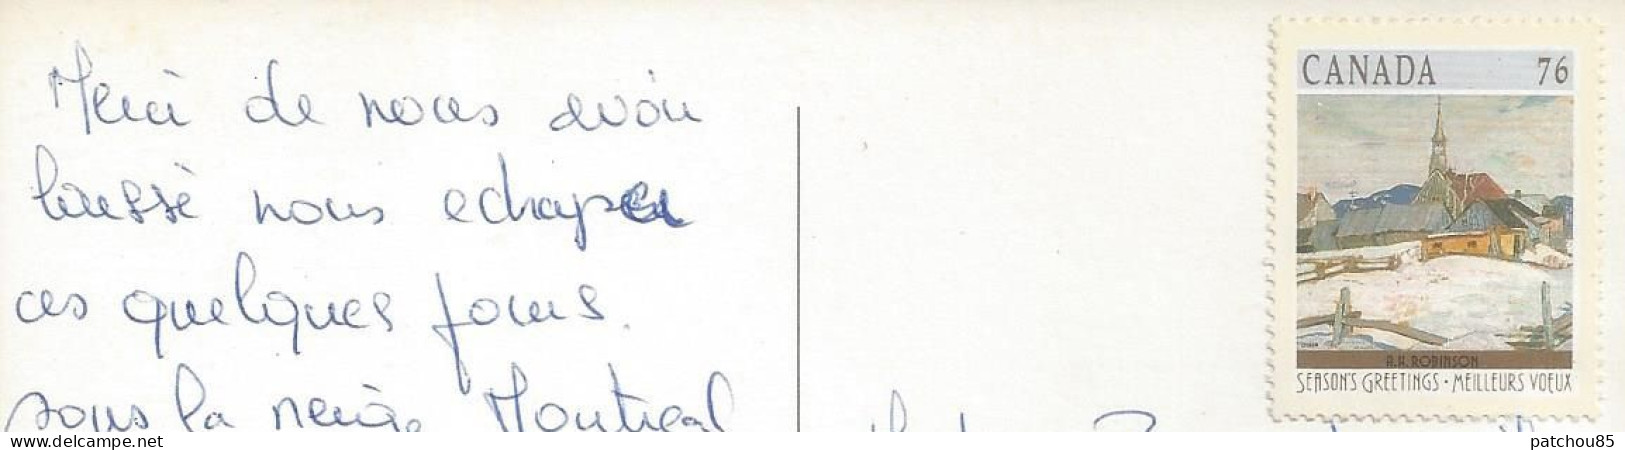 Merci de nous avoir
laissé nous echaper
ces quelques jours.
sous la neige Montreal
CANADA 76
A.H. ROBINSON
SEASON'S GREETINGS · MEILLEURS VOEUX
patchou85